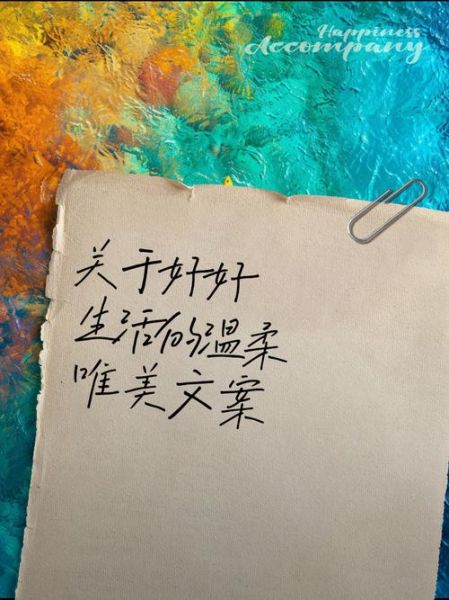 Happiness
Accompany
关于好好
生活的温柔
唯美文案